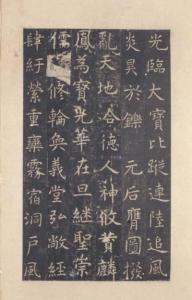 光臨大寶比蹤連陸追風
炎昊於鑠 元后膺圖撥
亂天地合德人神攸贊麟
鳳為寶光華在旦繼聖崇
儒修輪奐義堂弘敞經
肆紆縈重欒霧宿洞戶風